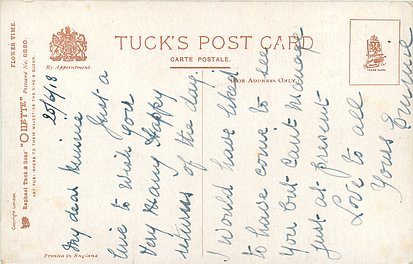 FLOWER TIME.
Raphael Tuck & Sons' "OILETTE" Postcard No. 8880.
ART PUBLISHERS TO THEIR MAJESTIES THE KING & QUEEN.
By Appointment
TUCK'S POST CARD
CARTE POSTALE.
FOR ADDRESS ONLY
TRADE MARK
Printed in England
20/6/18
My dear Minnie Just a
line to wish you
very Many Happy
returns of the day
I would have liked
to have come to see
you but can't manage
just at present
Love to all
Yours Emmie